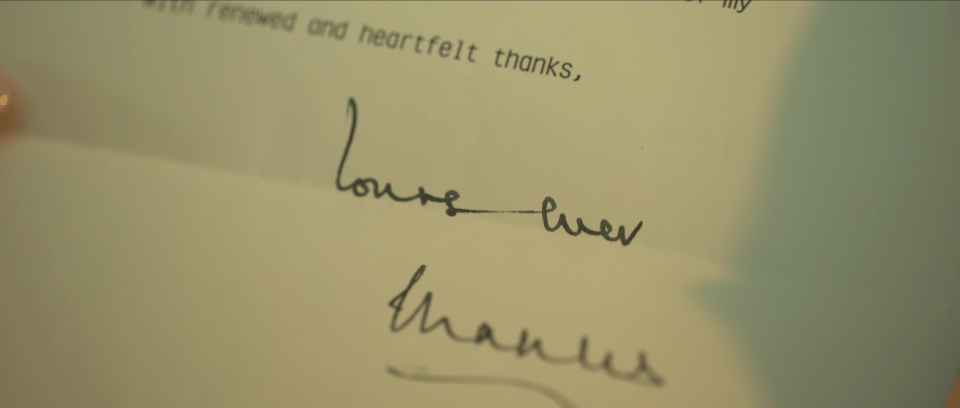 my
with renewed and heartfelt thanks,
Yours ever
Charles